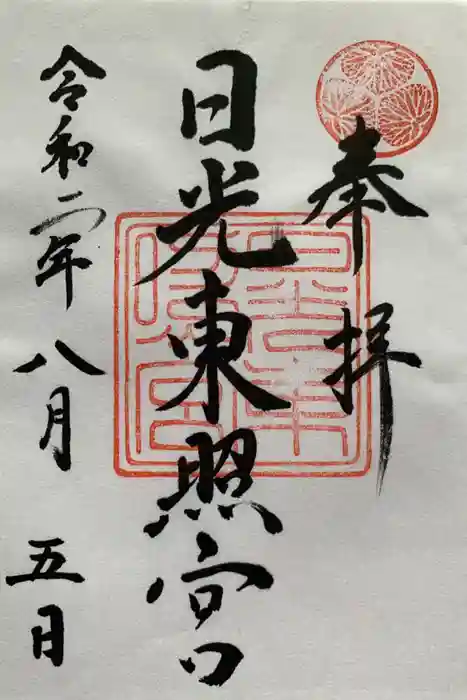 奉拝
日光東照宮
令和二年八月五日